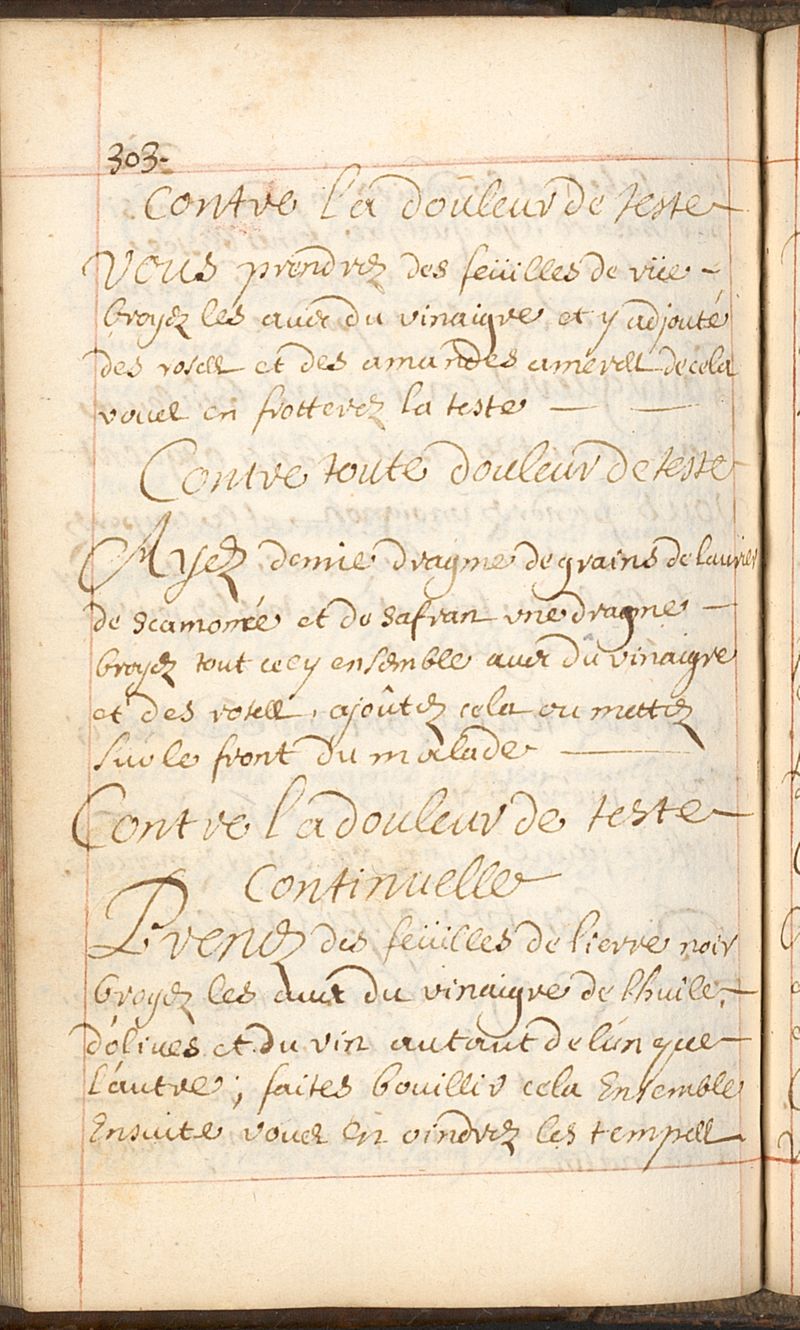 303-
Contre la douleur de teste
Vous prendrez des feüilles de rüe
broyez les avec du vinaigre et y adjouté
des roses et des amandes ameres de cela
vous en frotterez la teste
Contre toute douleur de teste
Ayez demie dragme de grains de laurier
de scamonée et de safran une dragme
broyez tout cecy ensemble avec du vinaigre
et des roses, ajoûtez cela ou mettez
sur le front du malade
Contre la douleur de teste
Continuelle
Prenez des feüilles de lierre noir
broyez les avec du vinaigre de l'huile
d'olives et du vin autant de l'un que
l'autre; faites bouillir cela Ensemble
Ensuite vous en oindrez les temples